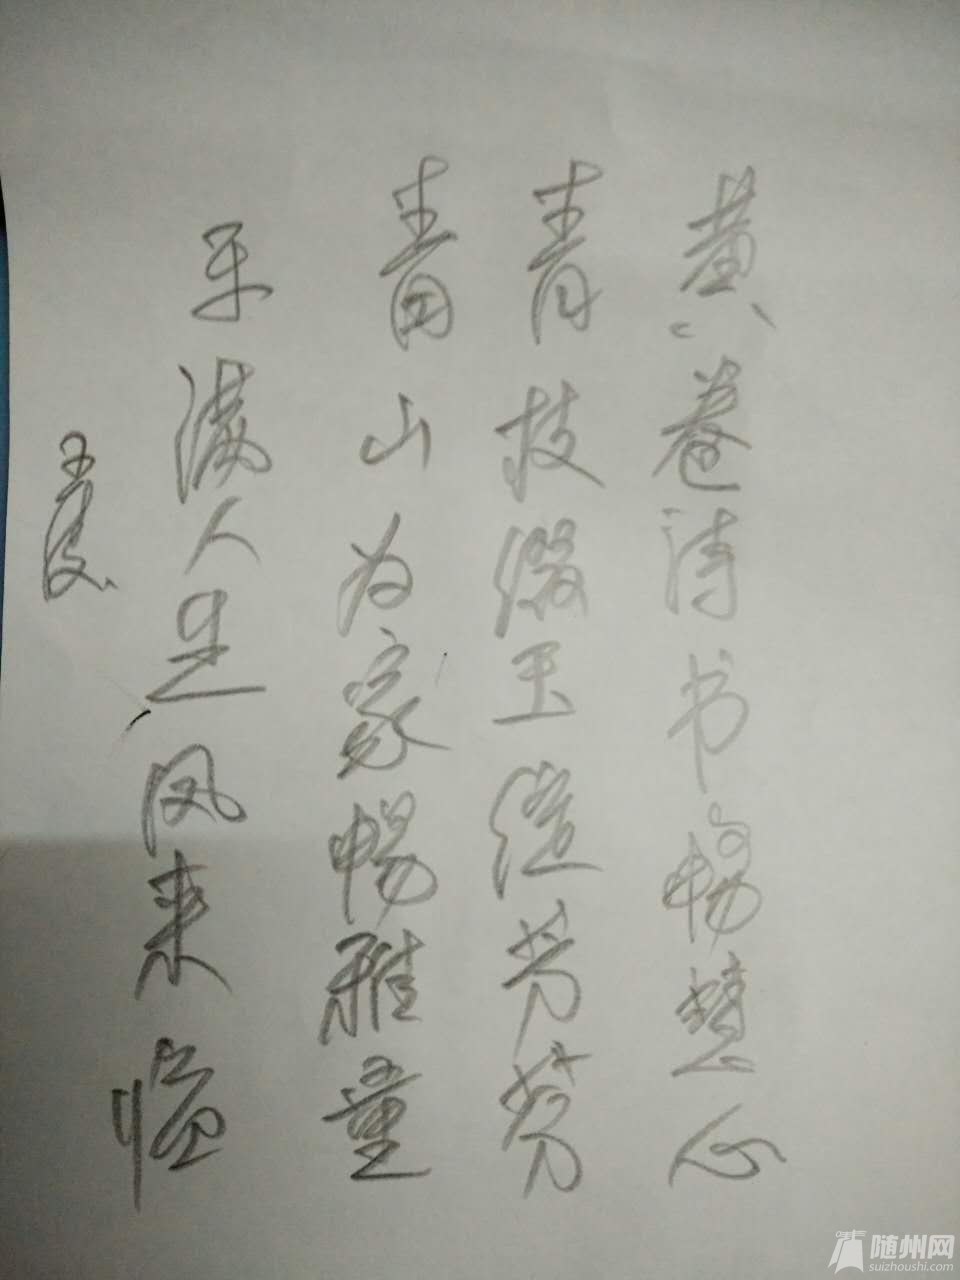 黄卷清书畅慧心
青枝缀玉绽芳芬
青山为家畅雅童
平满人足凤来临
随州网
suizhoushi.com